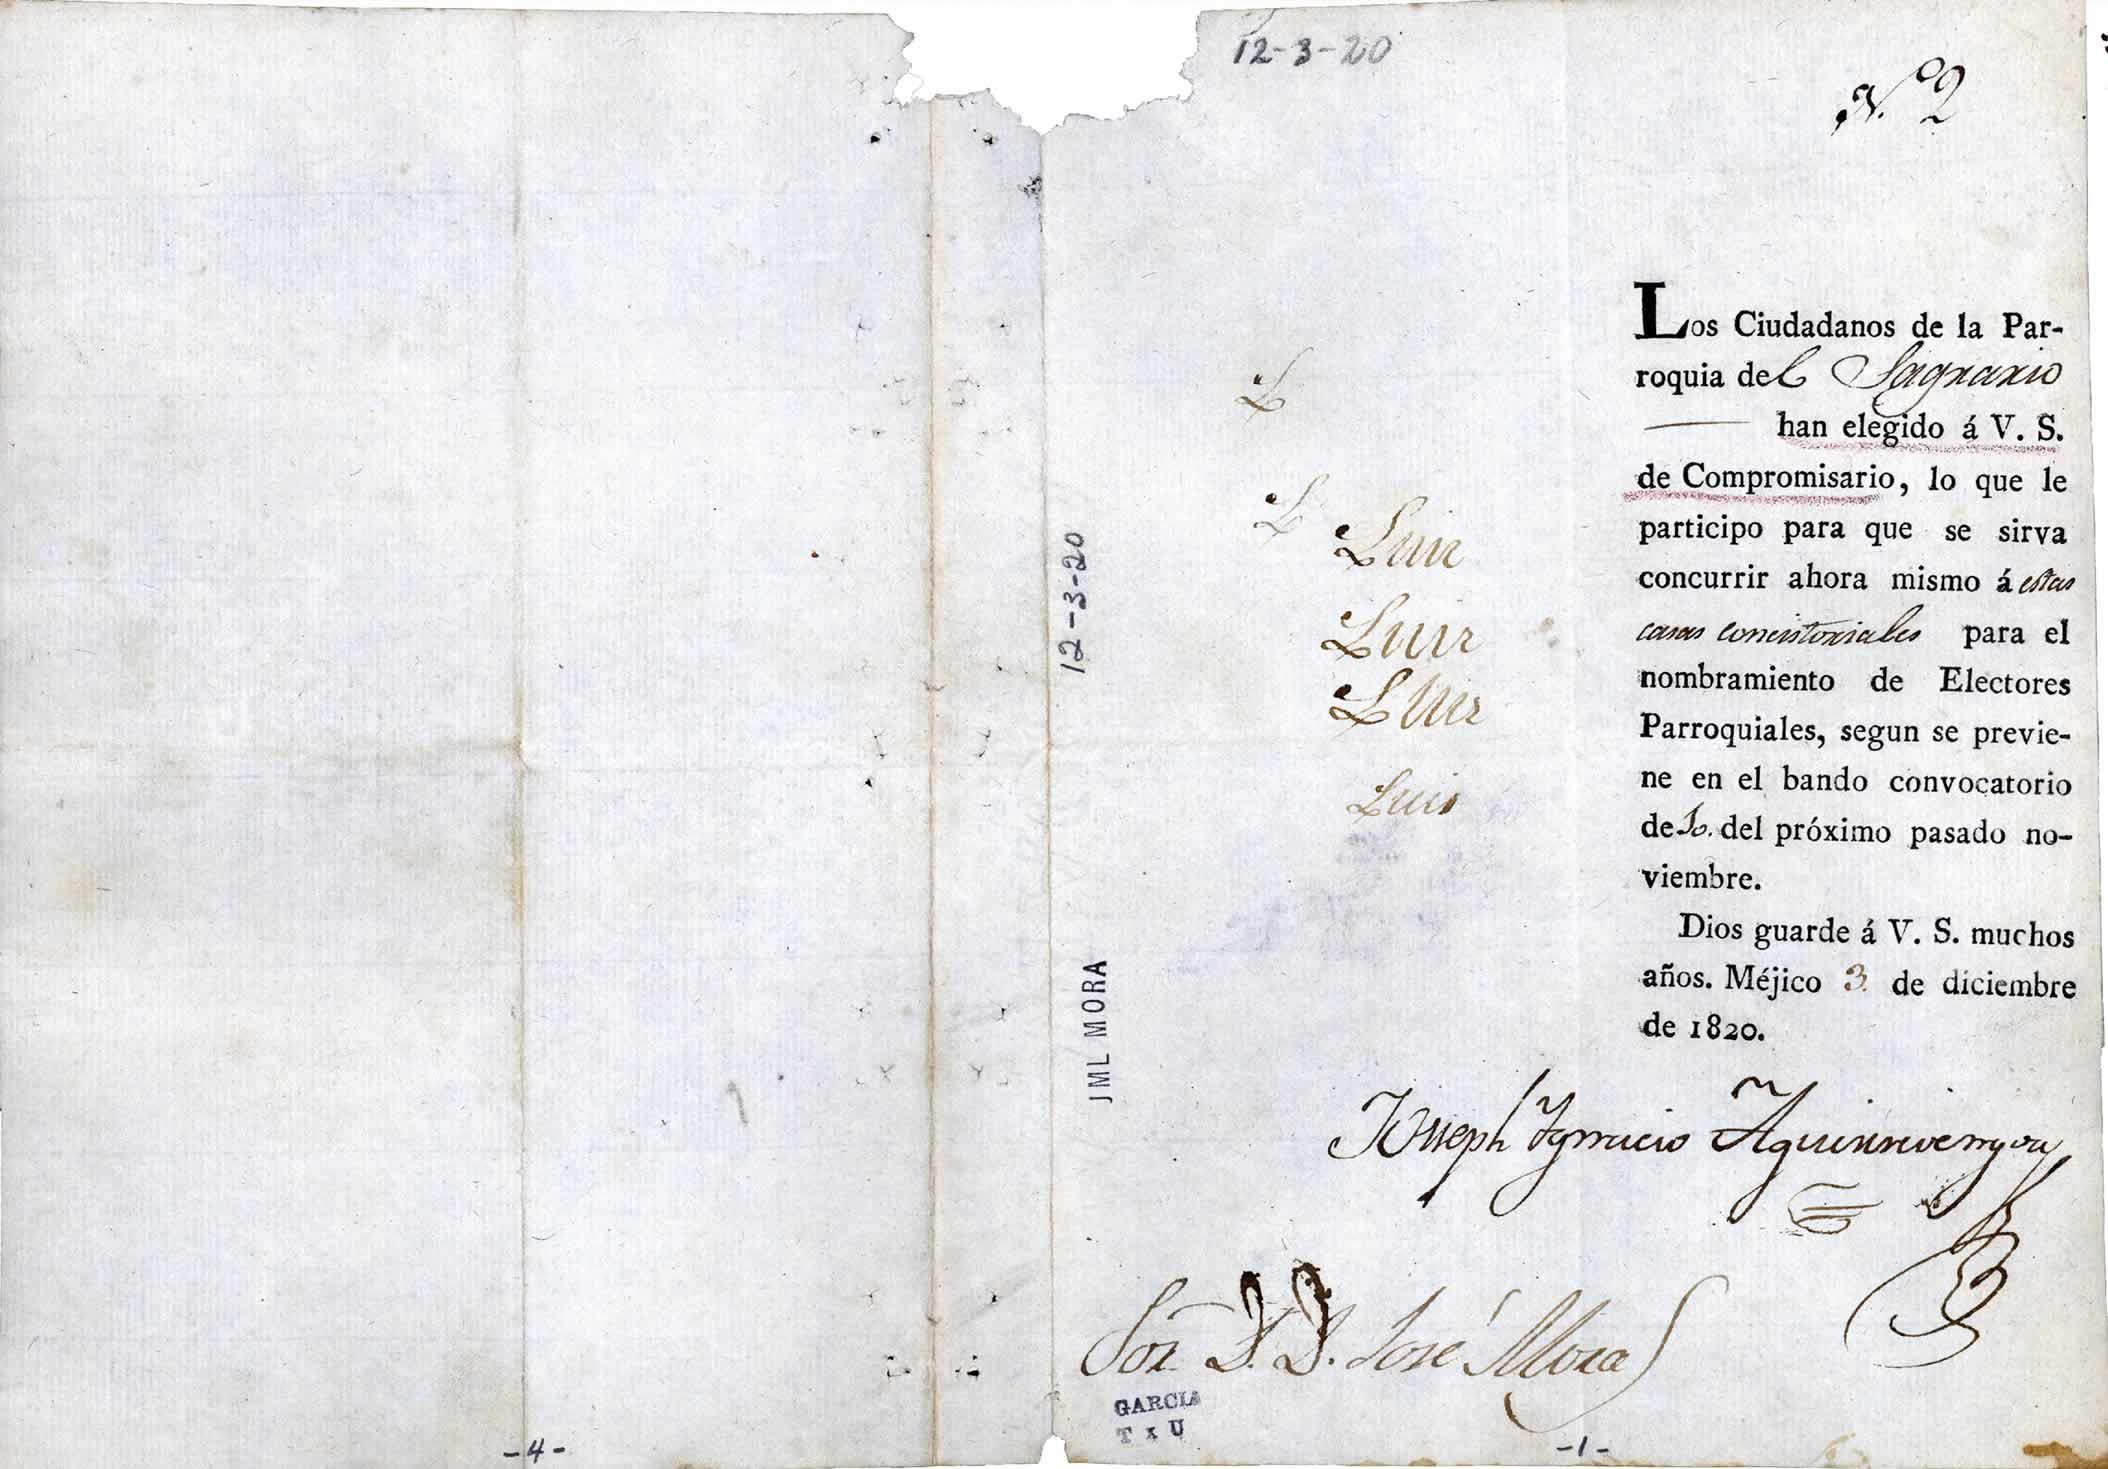 12-3-20
N.º 2
Los Ciudadanos de la Par-
roquia del Sagrario
han elegido á V. S.
de Compromisario, lo que le
participo para que se sirva
concurrir ahora mismo á estas
casas consistoriales para el
nombramiento de Electores
Parroquiales, segun se previe-
ne en el bando convocatorio
de del próximo pasado no-
viembre.
Dios guarde á V. S. muchos
años. Méjico 3 de diciembre
de 1820.
L
L
Luis
Luis
Luis
Luis
12-3-20
JML MORA
Josseph Ignacio
Sor. D. D. José Mora
GARCIA
T x U
-4-
-1-